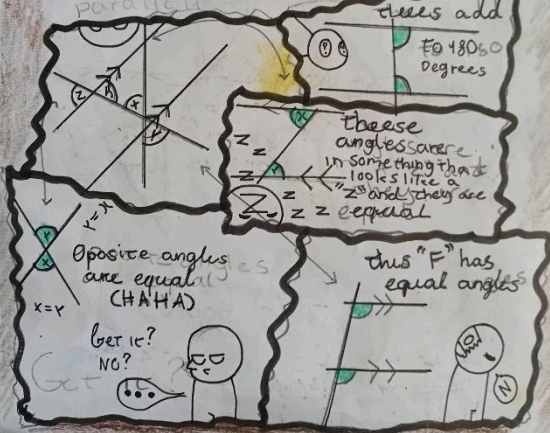 parallel
theese add
to 180
Degrees
z
y
x
y
x
y
theese
angles are
in something that
looks like a
"z" and they are
equal
Z
Z
Z
Z
Z
Z
y=x
y
x
x=y
Oposite angles
are equal
(HAHA)
Get it?
NO?
...
Get
this "F" has
equal angles
N